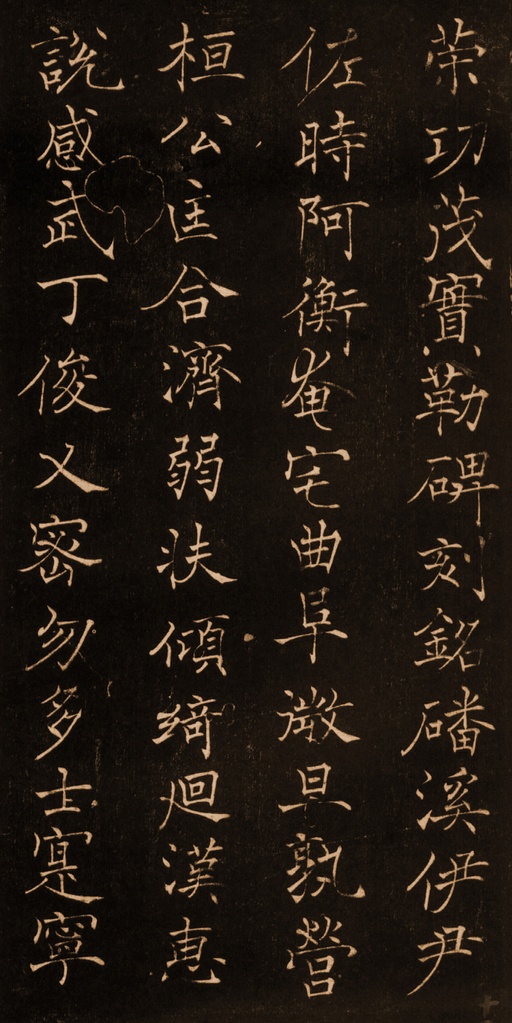 茦功茂實勒碑刻銘磻溪伊尹
佐時阿衡奄宅曲阜微旦孰營
桓公匡合濟弱扶傾綺廻漢惠
說感武丁俊乂密勿多士寔寧